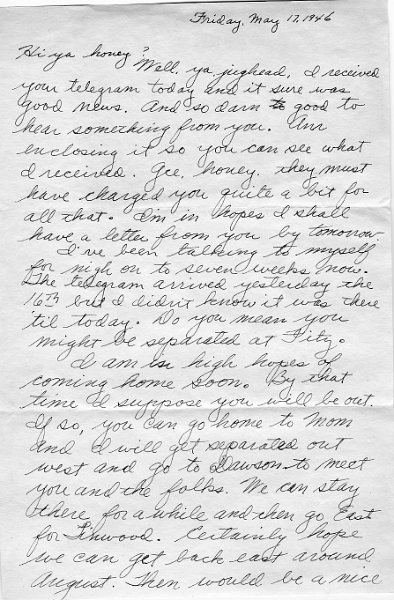 Friday, May 17, 1946
Hi ya honey?
Well, ya jughead, I received
your telegram today and it sure was
good news. And so darn to good to
hear something from you. Am
enclosing it so you can see what
I received. Gee, honey, they must
have charged you quite a bit for
all that. I'm in hopes I shall
have a letter from you by tomorrow.
I've been talking to myself
for nigh on to seven weeks now.
The telegram arrived yesterday the
16th but I didn't know it was there
til today. Do you mean you
might be separated at Fitz.
I am in high hopes of
coming home soon. By that
time I suppose you will be out.
If so, you can go home to Mom
and I will get separated out
west and go to Dawson to meet
you and the folks. We can stay
there for a while and then go East
for Linwood. Certainly hope
we can get back east around
August. Then would be a nice